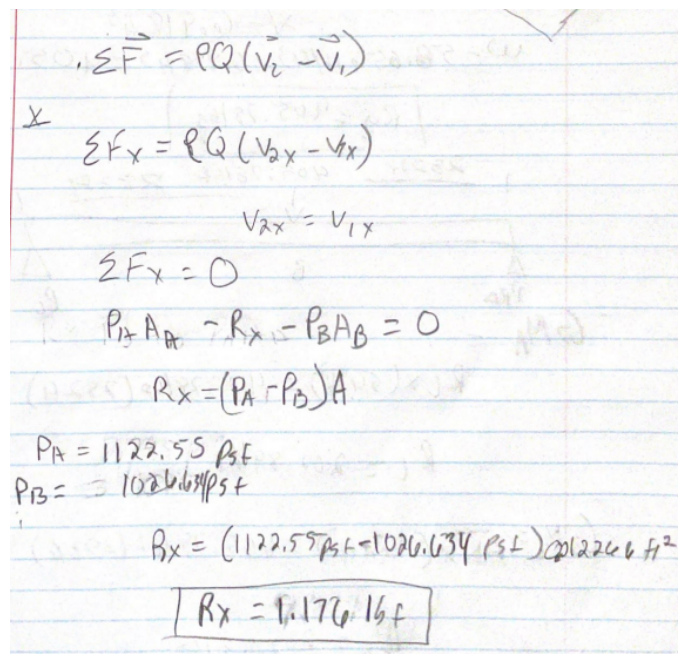 . ΣF⃗ = ρQ(V⃗₂ - V⃗₁)
X
ΣFx = ρQ(V₂x - V₁x)
V₂x = V₁x
ΣFx = 0
P_A A_A - Rx - P_B A_B = 0
Rx = (P_A - P_B)A
P_A = 1122.55 psf
P_B = 1026.634 psf
Rx = (1122.55 psf - 1026.634 psf) 0.012266 ft²
Rx = 1.176 lbf